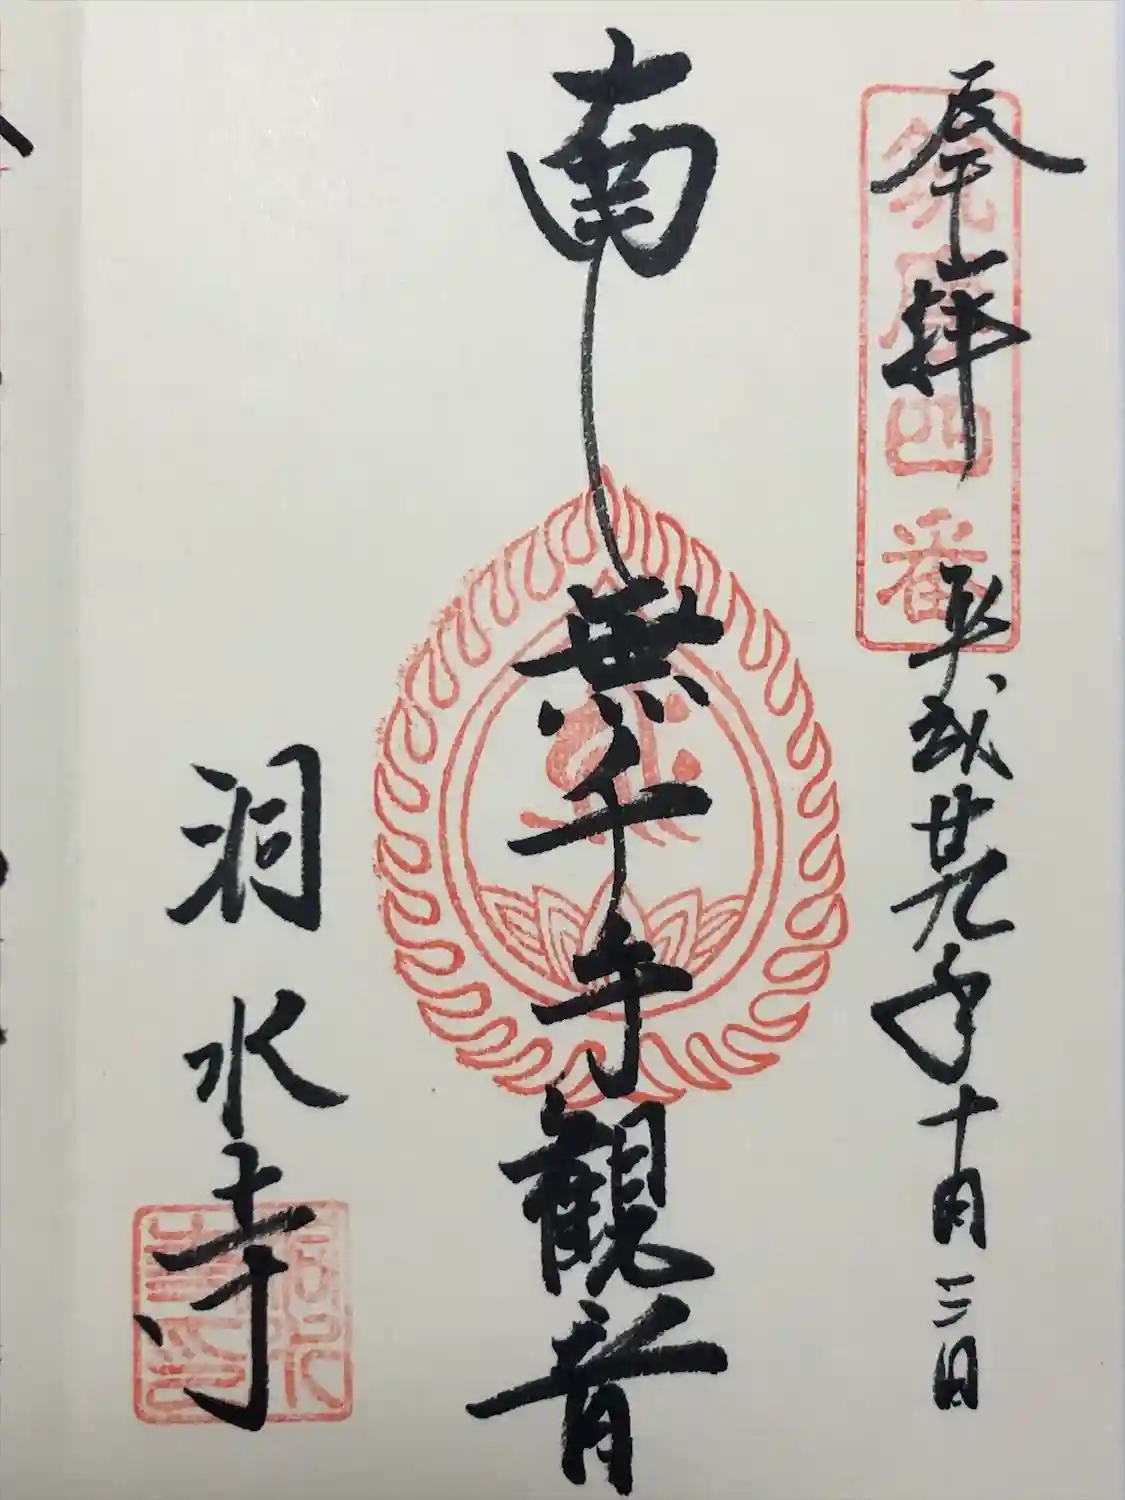 奉拝
平成廿九年十月三日
南無千手観音
洞水寺
四番